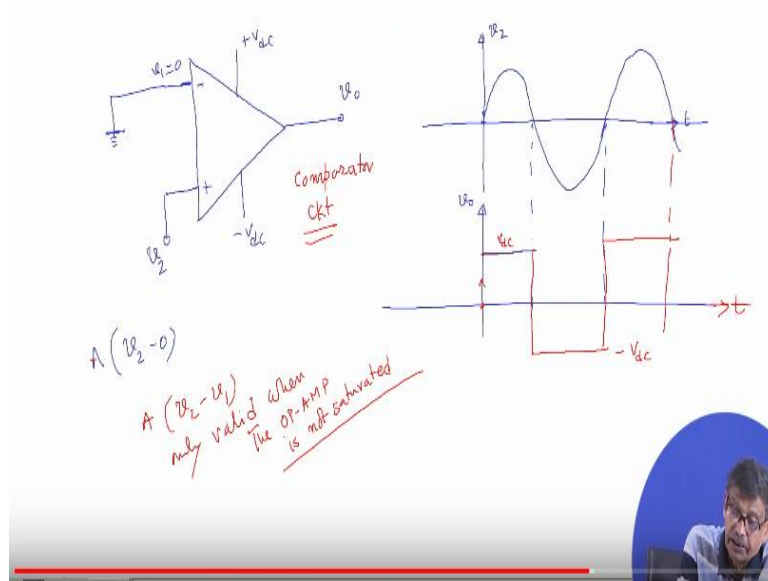 +Vdc
v1=0
-
v0
+
-Vdc
v2
Comparator
Ckt
A(v2-0)
A(v2-v1)
only valid when
The OP-AMP
is not saturated
v2
t
v0
Vdc
t
-Vdc